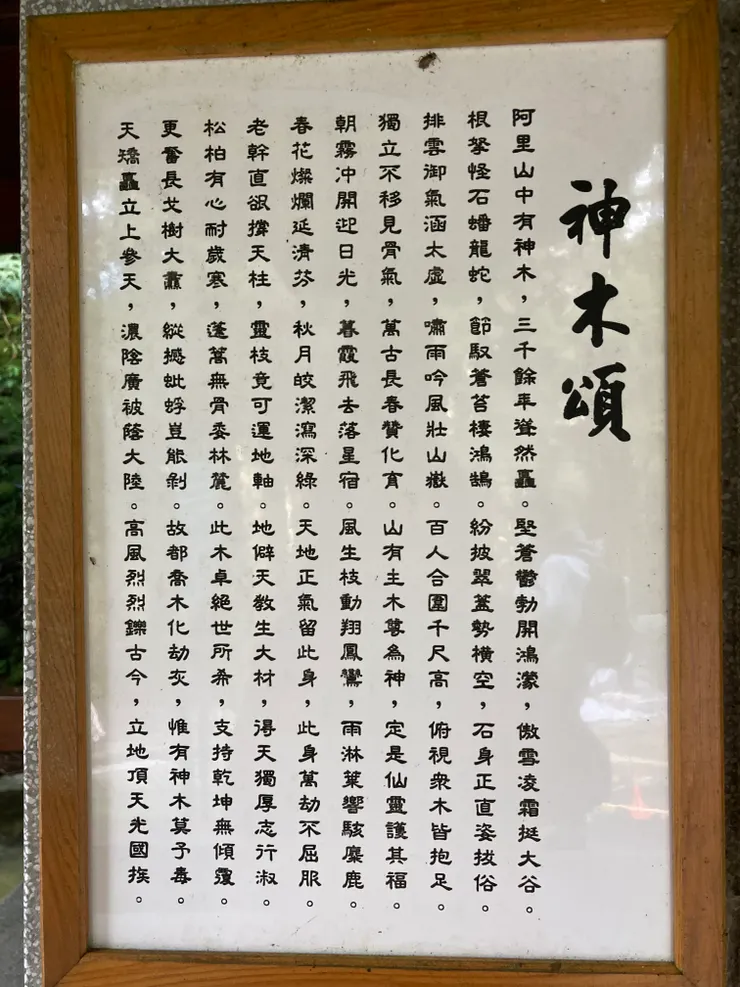 神木頌
阿里山中有神木，三千餘年聳然矗。堅蒼鬱勃開鴻濛，傲雪凌霜挺大谷。
根拏怪石蟠龍蛇，節馭蒼苔棲鴻鵠。紛披翠蓋勢橫空，石身正直姿拔俗。
排雲御氣涵太虛，嘯雨吟風壯山嶽。百人合圍千尺高，俯視眾木皆抱足。
獨立不移見骨氣，萬古長春贊化育。山有主木尊為神，定是仙靈護其福。
朝霧冲開迎日光，暮霞飛去落星宿。風生枝動翔鳳鸞，雨淋葉響駭麋鹿。
春花燦爛延清芬，秋月皎潔瀉深綠。天地正氣留此身，此身萬劫不屈服。
老幹直欲撐天柱，靈枝竟可運地軸。地僻天教生大材，得天獨厚志行淑。
松柏有心耐歲寒，蓬蒿無骨委林麓。此木卓絕世所希，支持乾坤無傾覆。
更奮長戈樹大纛，縱撼蚍蜉豈能剝。故都喬木化劫灰，惟有神木莫予毒。
夭矯矗立上參天，濃陰廣被蔭大陸。高風烈烈鑠古今，立地頂天光國族。